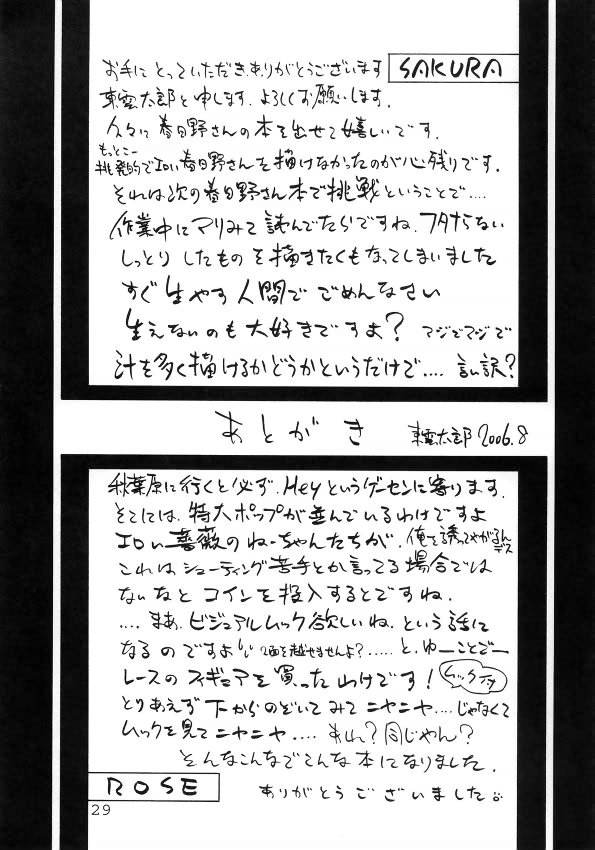 SAKURA
お手にとっていただきありがとうございます
東雲太郎と申します。よろしくお願いします。
久々に春日野さんの本を出せて嬉しいです。
もっとこー
挑発的でエロい春日野さんを描けなかったのが心残りです。
それは次の春日野さん本で挑戦ということで....
作業中にマリみて読んでたらですね、フタナらない
しっとりしたものを描きたくもなってしまいました
すぐ生やす人間でごめんなさい
生えないのも大好きですよ? マジでマジで
汁を多く描けるかどうかというだけで.... 言い訳?
あとがき 東雲太郎 2006.8
秋葉原に行くと必ず、Heyというゲーセンに寄ります。
そこには、特大ポップが並んでいるわけですよ
エロい薔薇のねーちゃんたちが、俺を誘ってやがるんデス
これはシューティング苦手とか言ってる場合では
ないなとコインを投入するとですね、
....まあ、ビジュアルムック欲しいね、という話に
なるのですよ 2面を越せませんよ?.....と、ゆーことでー
レースのフィギュアを買ったわけです! ムックデナイ
とりあえず下からのぞいてみてニヤニヤ....じゃなくて
ムックを見てニヤニヤ..... あれ?同じやん?
そんなこんなでこんな本になりました。
ROSE
ありがとうございました
29